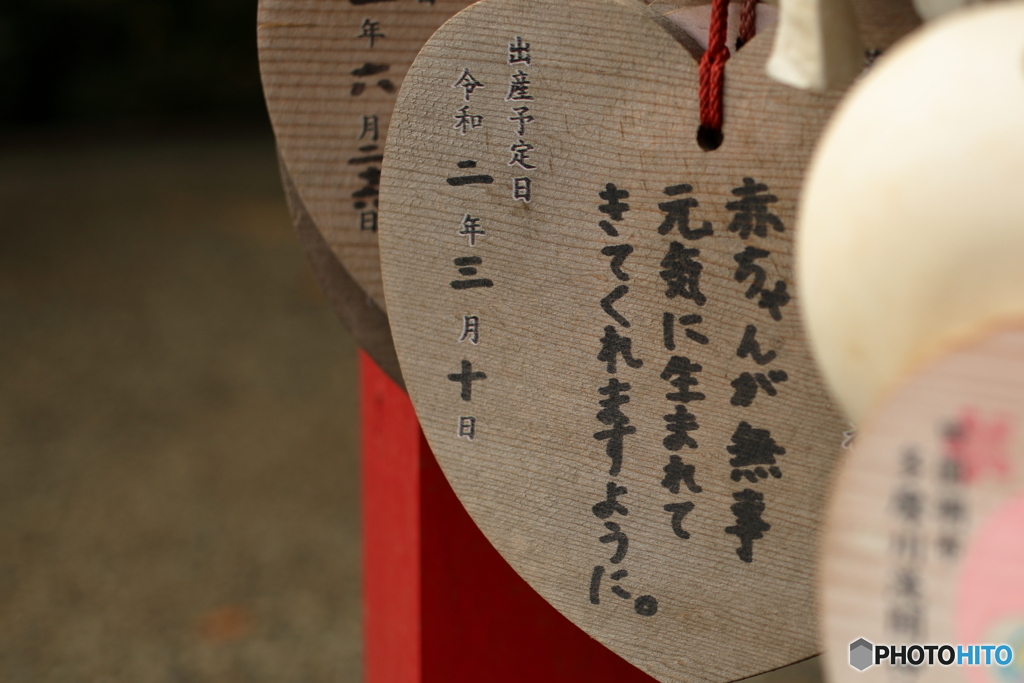 赤ちゃんが無事
元気に生まれて
きてくれますように。
出産予定日
令和二年三月十日
年六月二
日
PHOTOHITO